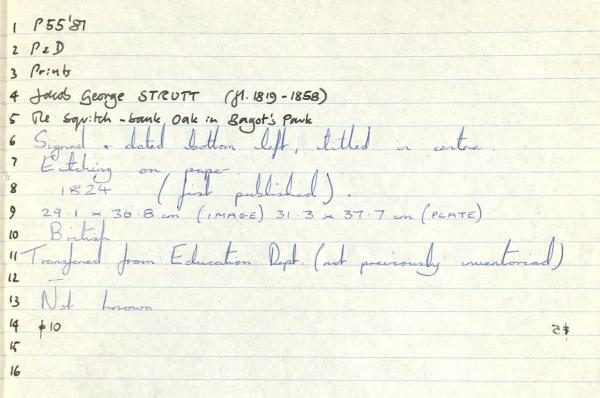 1 P55'87
2 P&D
3 Prints
4 Jacob George STRUTT (fl. 1819-1858)
5 The Squitch-bank Oak in Bagot's Park
6 Signed + dated bottom left, titled in centre.
7 Etching on paper.
8 1824 (first published).
9 29.1 x 30.8 cm (IMAGE) 31.3 x 37.7 cm (PLATE)
10 British
11 Transfered from Education Dept. (not previously inventoried)
12 —
13 Not known
14 10
15
16